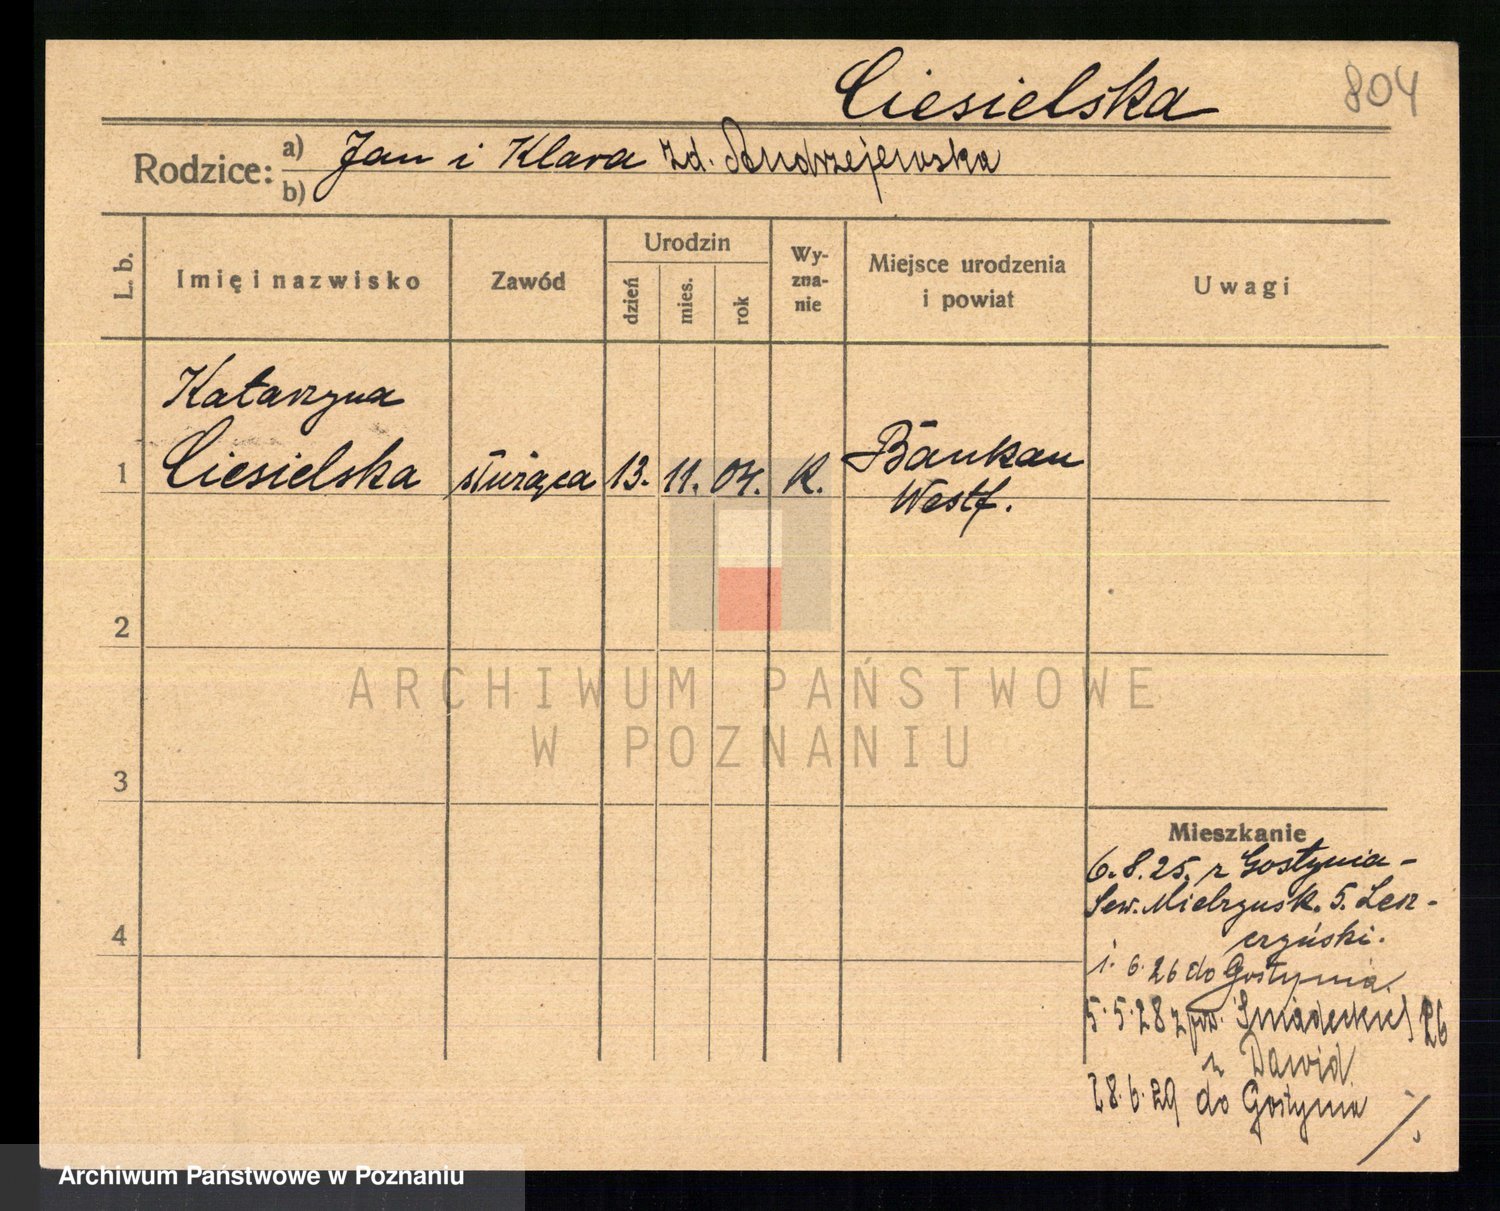 Ciesielska
804
Rodzice: a) Jan i Klara zd. Andrzejewska
b)
L. b.
Imię i nazwisko
Zawód
Urodzin
dzień
mies.
rok
Wy-
zna-
nie
Miejsce urodzenia
i powiat
Uwagi
Katarzyna
1 Ciesielska służąca 13. 11. 04. K. Bäukau
Westf.
2
3
4
ARCHIWUM PAŃSTWOWE
W POZNANIU
Mieszkanie
6.8.25. z Gostynia -
Sew. Mielżyńsk. 5. Lesz-
czyński.
1. 6. 26 do Gostynia.
5. 5. 28 z pow. Śniadeckich 26
u Dawid
28. 6. 29 do Gostynia
Archiwum Państwowe w Poznaniu